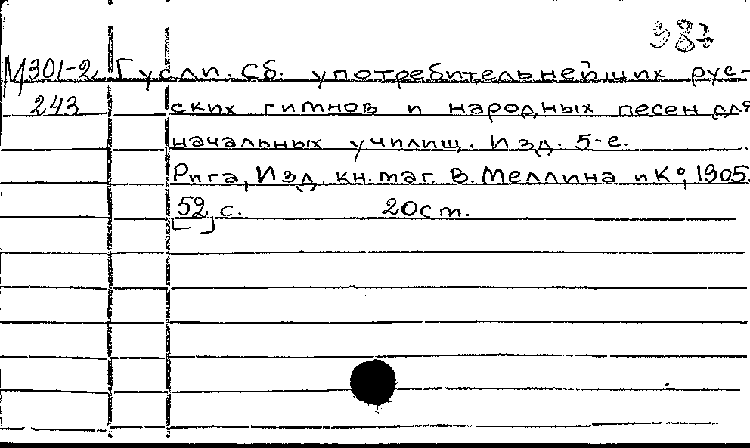 387
М301-2 Гусли. Сб. употребительнейших рус-
243 ских гимнов и народных песен для
начальных училищ. Изд. 5-е.
Рига, Изд. кн. маг. В. Меллина и К°, 1905.
52 с. 20 см.